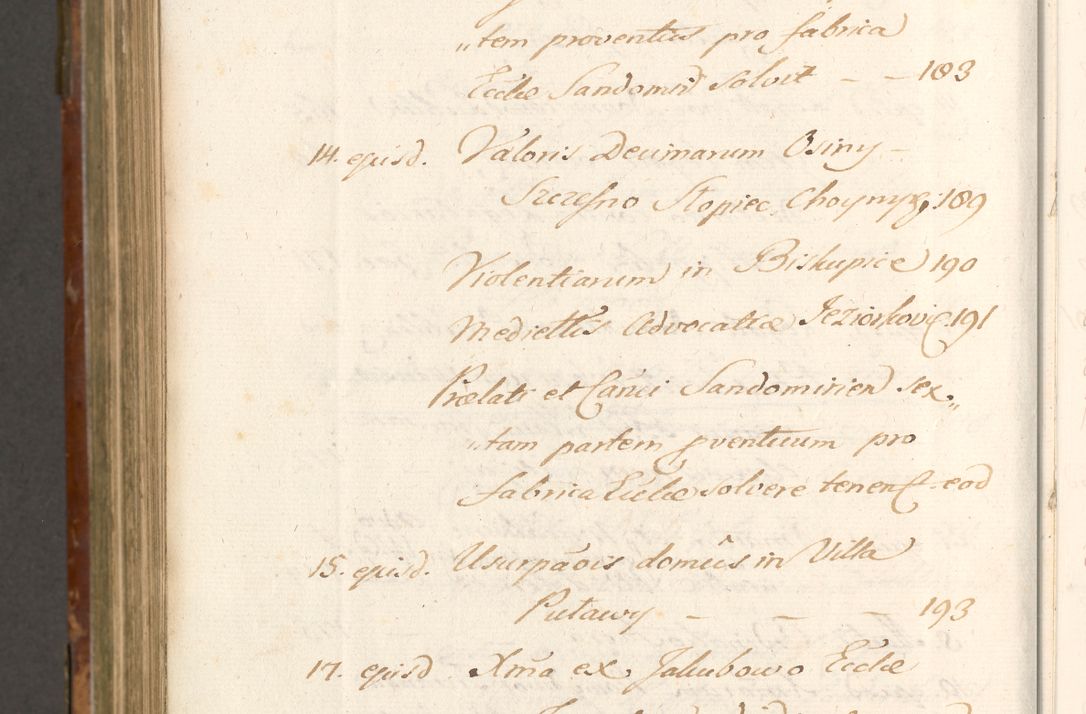 „tem proventus pro fabrica
Eccłæ Sandomir solvit – – 183
14. ejusd. Valoris Decimarum Osiny –
Szczęsno Stopiec Choyny 189
Violentiarum in Biskupice 190
Mediettis Advocatiæ Jeziorkovic. 191
Prælati et Canci Sandomirien Sex„
„tam partem pventuum pro
fabrica Ecclæ solvere tenent. eod
15. ejusd. Usurpãois domûs in Villa
Puławy – – – 193
17. ejusd Xma ex Jakubowo Ecclæ